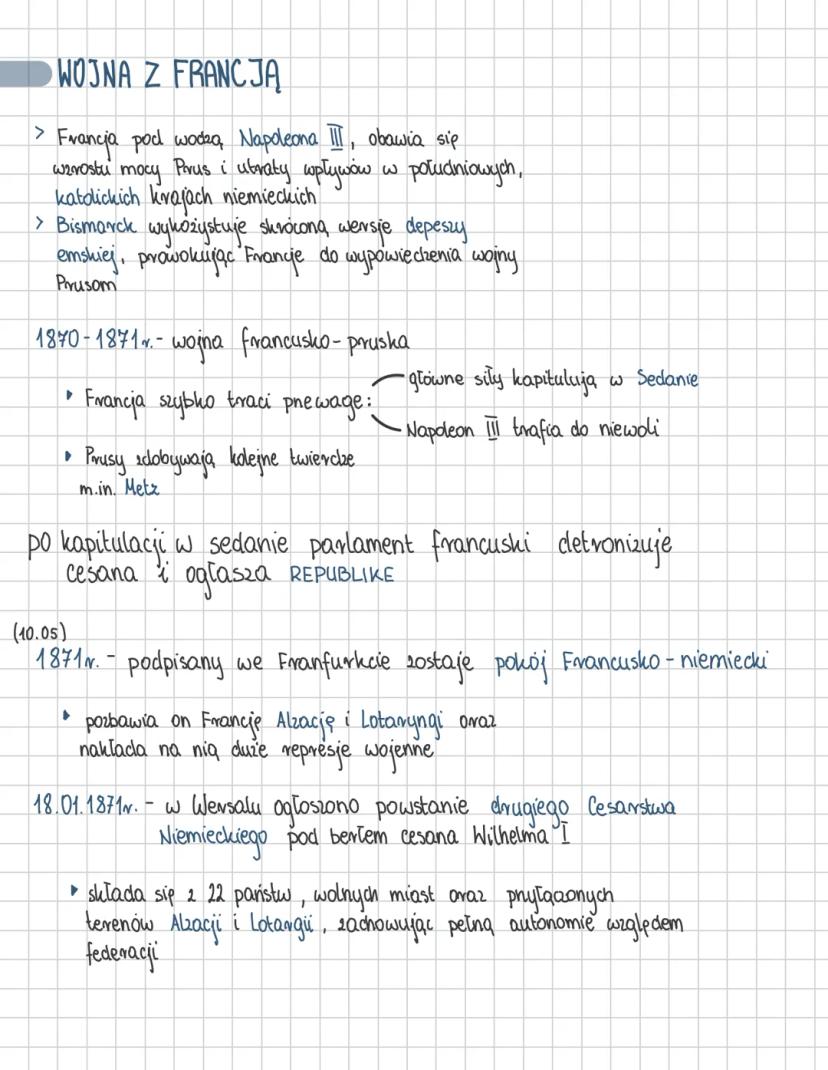 WOJNA Z FRANCJĄ
> Francja pod wodzą Napoleona III, obawia się
wzrostu mocy Prus i utraty wpływów w południowych,
katolickich krajach niemieckich
> Bismarck wykożystuje skróconą wersję depeszy
emskiej, prowokując Francję do wypowiedzenia wojny
Prusom
1870-1871r.- wojna francusko-pruska
‣ Francja szybko traci przewagę:
główne siły kapitulują w Sedanie
Napoleon III trafia do niewoli
‣ Prusy zdobywają kolejne twierdze
m.in. Metz
po kapitulacji w sedanie parlament francuski detronizuje
cesarza i ogłasza REPUBLIKE
(10.05)
1871r. - podpisany we Franfurkcie zostaje pokój Francusko-niemiecki
‣ pozbawia on Francję Alzację i Lotaryngi oraz
nakłada na nią duże represje wojenne
18.01.1871r. - w Wersalu ogłoszono powstanie drugiego Cesarstwa
Niemieckiego pod berłem cesarza Wilhelma I
‣ składa się z 22 państw, wolnych miast oraz przyłączonych
terenów Alzacji i Lotangii, zachowując pełną autonomie względem
federacji